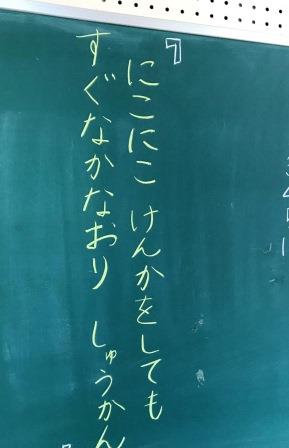 7
にこにこ けんかをしても
すぐなかなおり しゅうかん